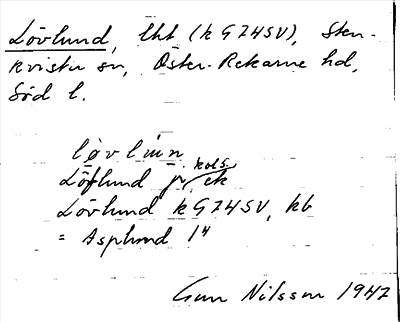 Lövlund, lht (k G74SV), Sten-
kvista sn, Öster-Rekarne hd,
Söd l.
lø̲vlun̲
kols.
Löflund jr, ek
Lövlund k G74SV, kb
= Asplund 1⁴
Gun Nilsson 1947